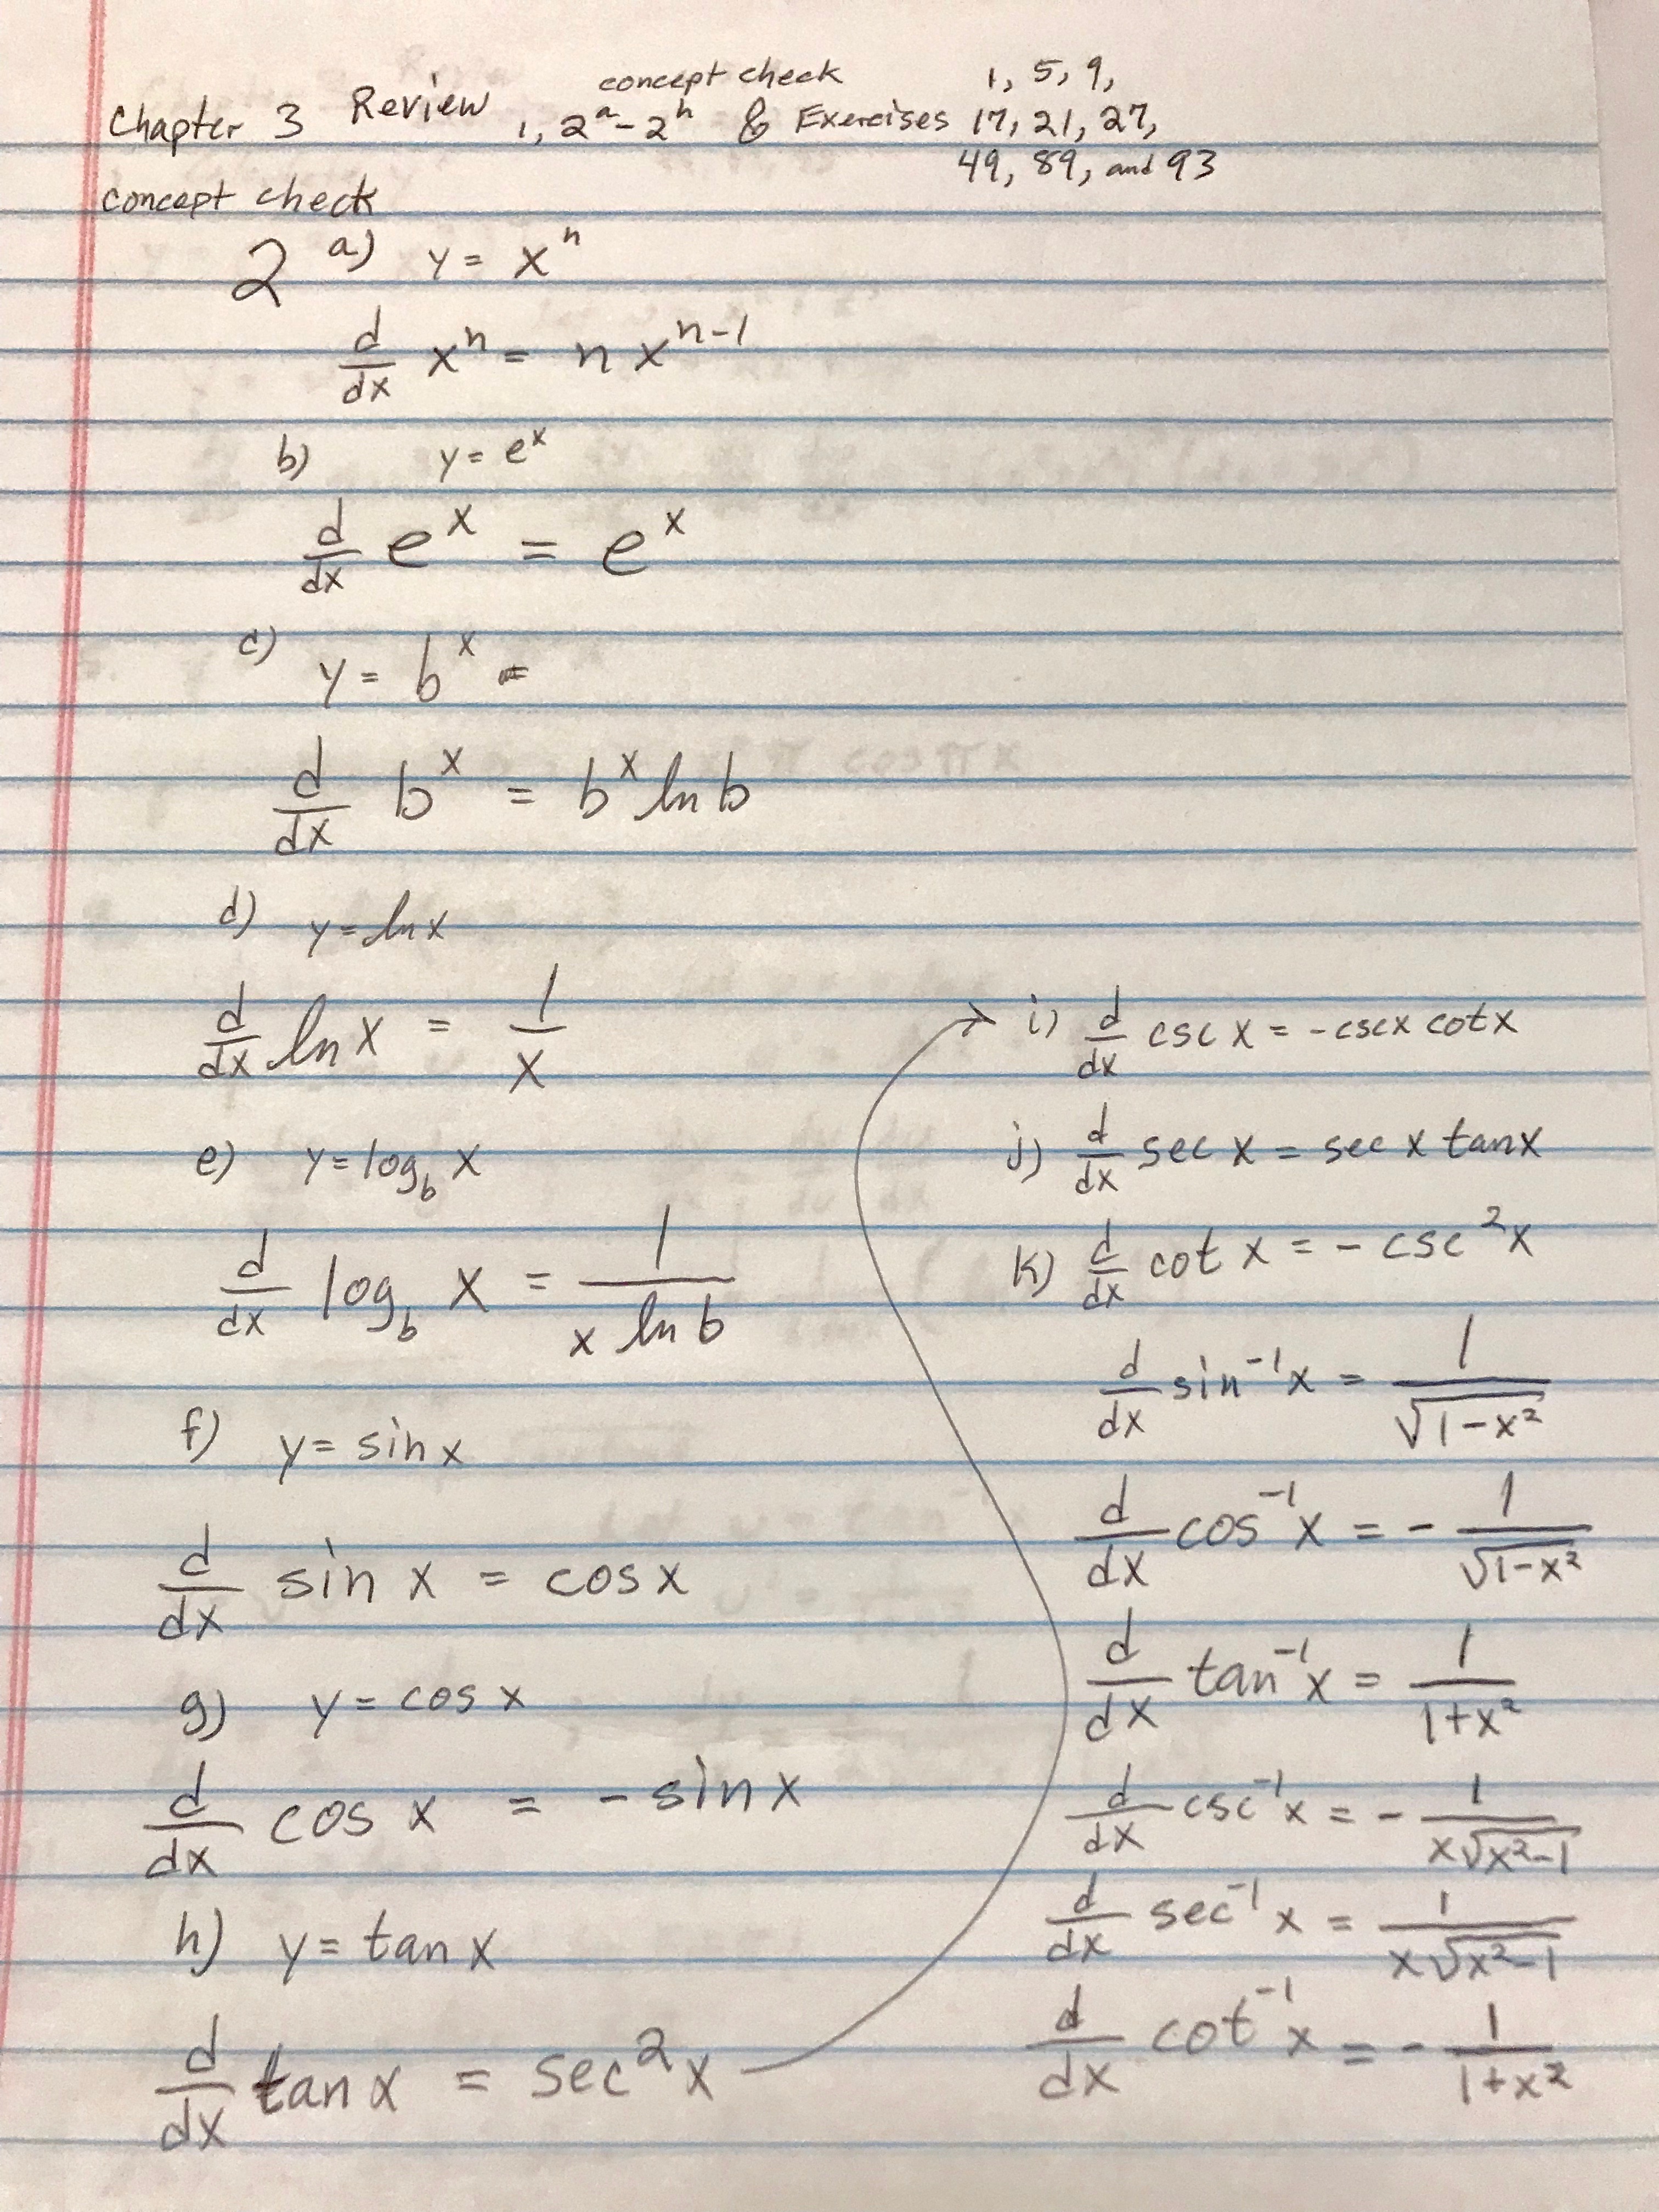 concept check 1, 5, 9,
Chapter 3 Review 1, 2ᵃ-2ʰ & Exercises 17, 21, 27,
49, 89, and 93
concept check
2 a) y = xⁿ
d/dx xⁿ = n xⁿ⁻¹
b) y = eˣ
d/dx eˣ = eˣ
c) y = bˣ =
d/dx bˣ = bˣ ln b
d) y = ln x
d/dx ln x = 1/x
e) y = log_b x
d/dx log_b x = 1/(x ln b)
f) y = sin x
d/dx sin x = cos x
g) y = cos x
d/dx cos x = - sin x
h) y = tan x
d/dx tan x = sec²x
i) d/dx csc x = -csc x cot x
j) d/dx sec x = sec x tan x
k) d/dx cot x = - csc²x
d/dx sin⁻¹x = 1/√(1-x²)
d/dx cos⁻¹x = - 1/√(1-x²)
d/dx tan⁻¹x = 1/(1+x²)
d/dx csc⁻¹x = - 1/(x√(x²-1))
d/dx sec⁻¹x = 1/(x√(x²-1))
d/dx cot⁻¹x = - 1/(1+x²)